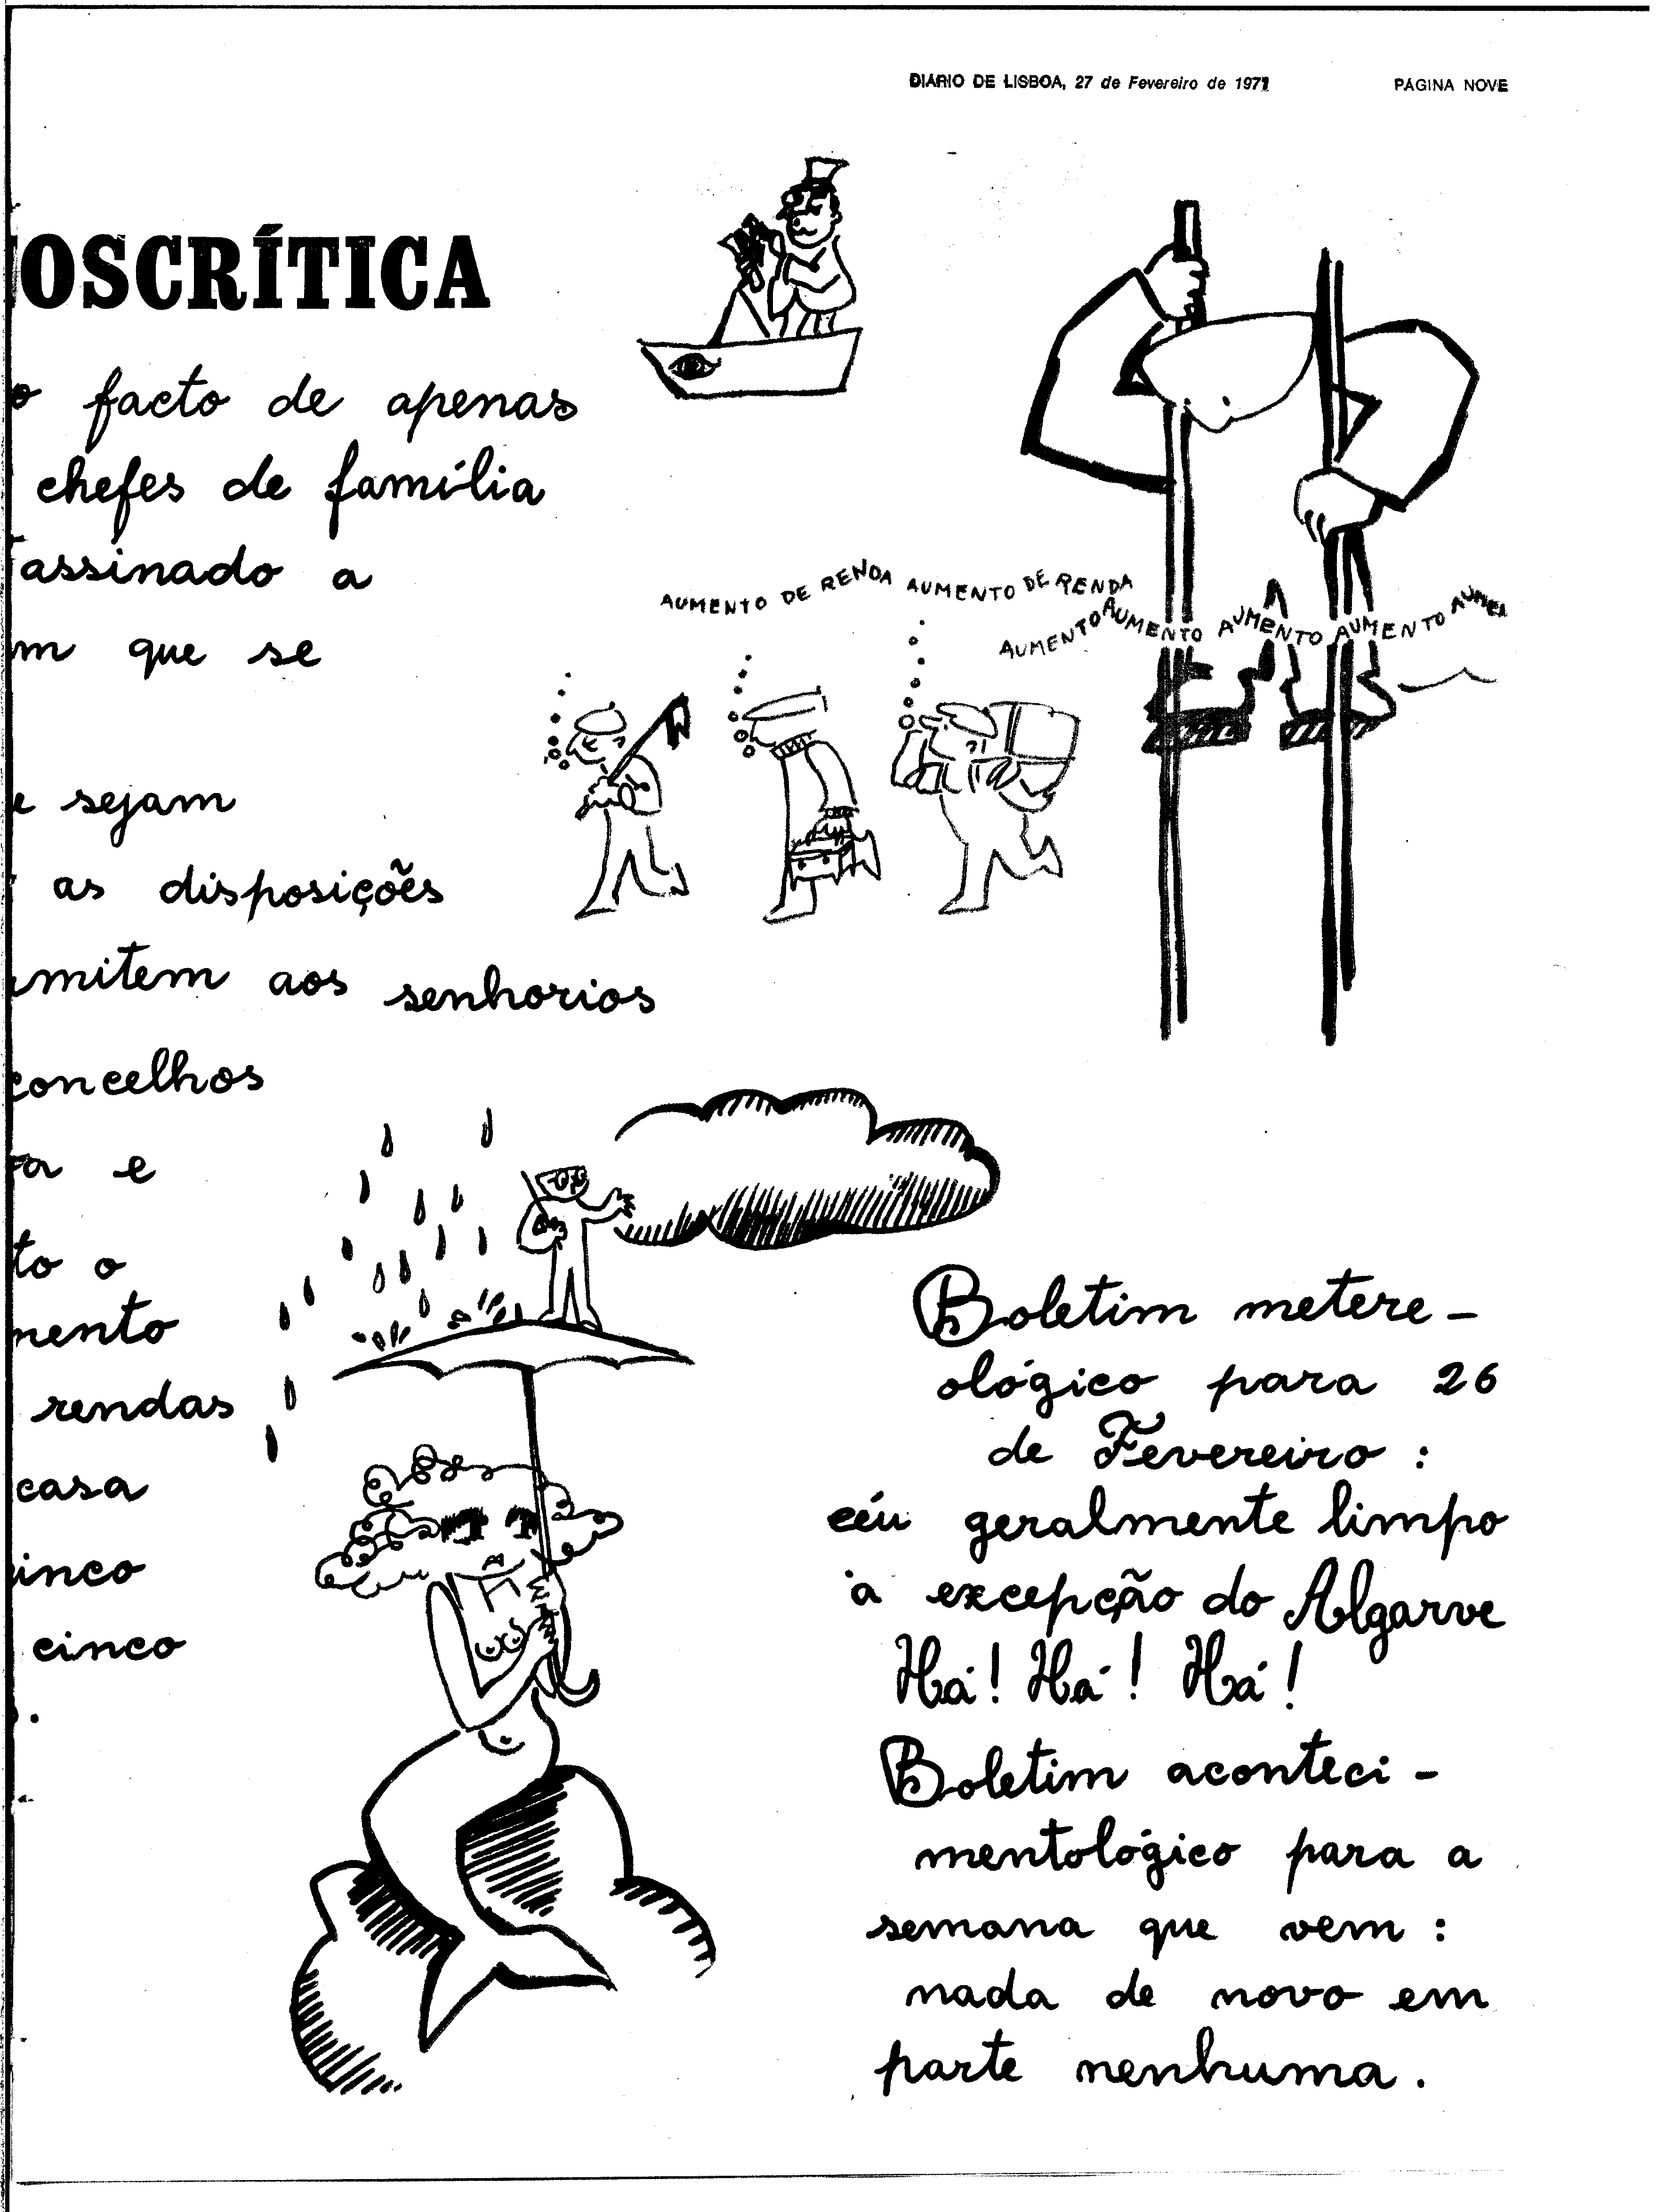 DIÁRIO DE LISBOA, 27 de Fevereiro de 1971 PÁGINA NOVE
OSCRÍTICA
o facto de apenas
chefes de família
assinado a
m que se
e sejam
as disposições
mitem aos senhorios
concelhos
ra e
to o
mento
rendas
casa
inco
cinco
.
AUMENTO DE RENDA AUMENTO DE RENDA
AUMENTO AUMENTO AUMENTO AUMENTO AUMEN
Boletim metere-
ológico para 26
de Fevereiro :
céu geralmente limpo
à excepção do Algarve
Há! Há! Há!
Boletim aconteci-
mentológico para a
semana que vem :
nada de novo em
parte nenhuma.